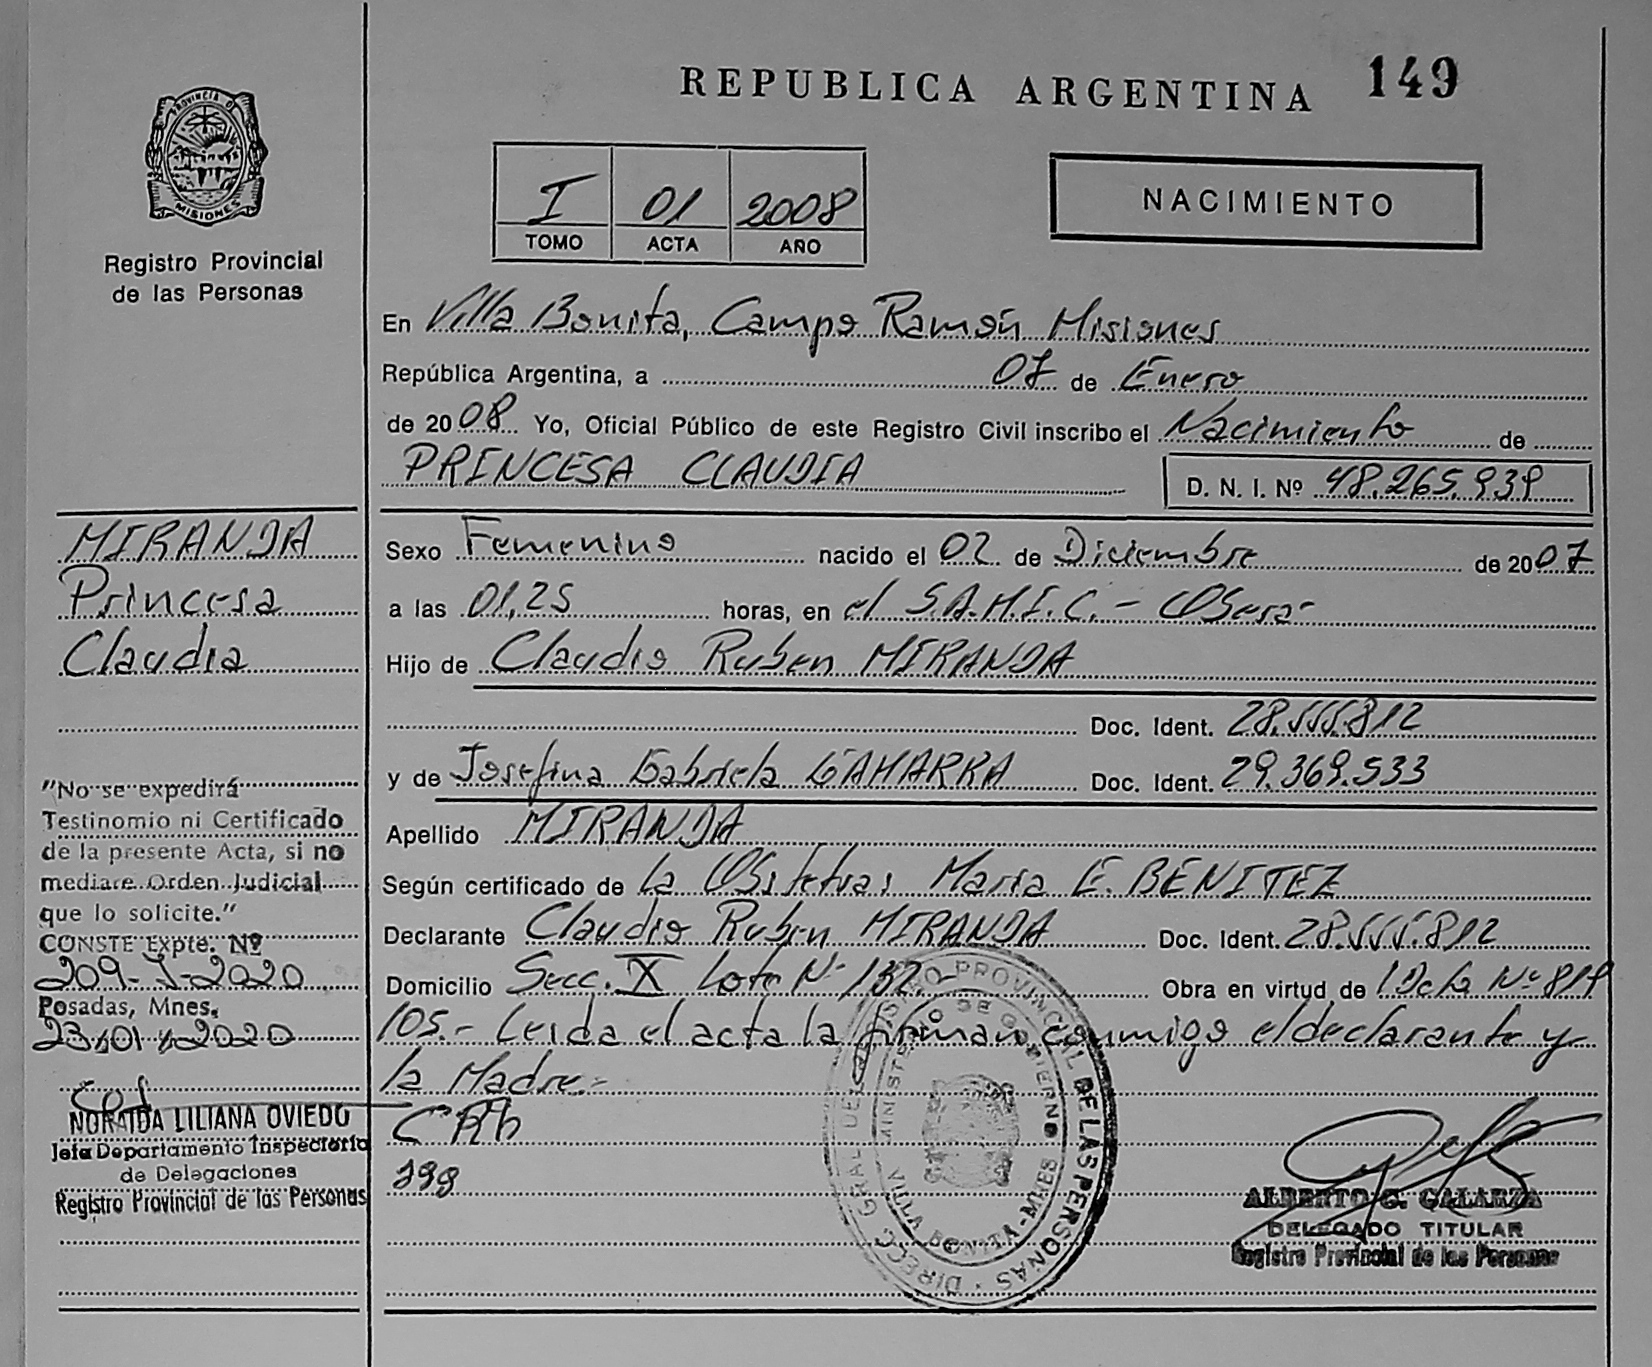 REPUBLICA ARGENTINA 149
PROVINCIA D
MISIONES
Registro Provincial
de las Personas
I 01 2008
TOMO ACTA AÑO
NACIMIENTO
En Villa Bonita, Campo Ramón Misiones
República Argentina, a 07 de Enero
de 2008 Yo, Oficial Público de este Registro Civil inscribo el Nacimiento de
PRINCESA CLAUDIA
D. N. I. Nº 48.265.939
MIRANDA
Princesa
Claudia
Sexo Femenino nacido el 02 de Diciembre de 2007
a las 01,25 horas, en el S.A.M.I.C. - Obera-
Hijo de Claudio Ruben MIRANDA
Doc. Ident. 28.555.812
y de Josefina Gabriela GAMARRA Doc. Ident. 29.369.533
Apellido MIRANDA
Según certificado de la Maria E. BENITEZ
Declarante Claudio Ruben MIRANDA Doc. Ident. 28.555.812
Domicilio Secc. IX Lote Nº 132.- Obra en virtud de Nº 819
105.- Leida el acta la firman conmigo el declarante y
la Madre.-
"No se expedirá
Testinomio ni Certificado
de la presente Acta, si no
mediare Orden Judicial
que lo solicite."
CONSTE Expte. Nº
209-J-2020
Posadas, Mnes.
23/01/2020
NORAIDA LILIANA OVIEDO
Jefa Departamento Inspectoría
de Delegaciones
Registro Provincial de las Personas
DIRECC. GRAL. DEL REGISTRO PROVINCIAL DE LAS PERSONAS
MINISTERIO DE GOBIERNO
VILLA BONITA - MNES
ALBERTO G. GALARZA
DELEGADO TITULAR
Registro Provincial de las Personas